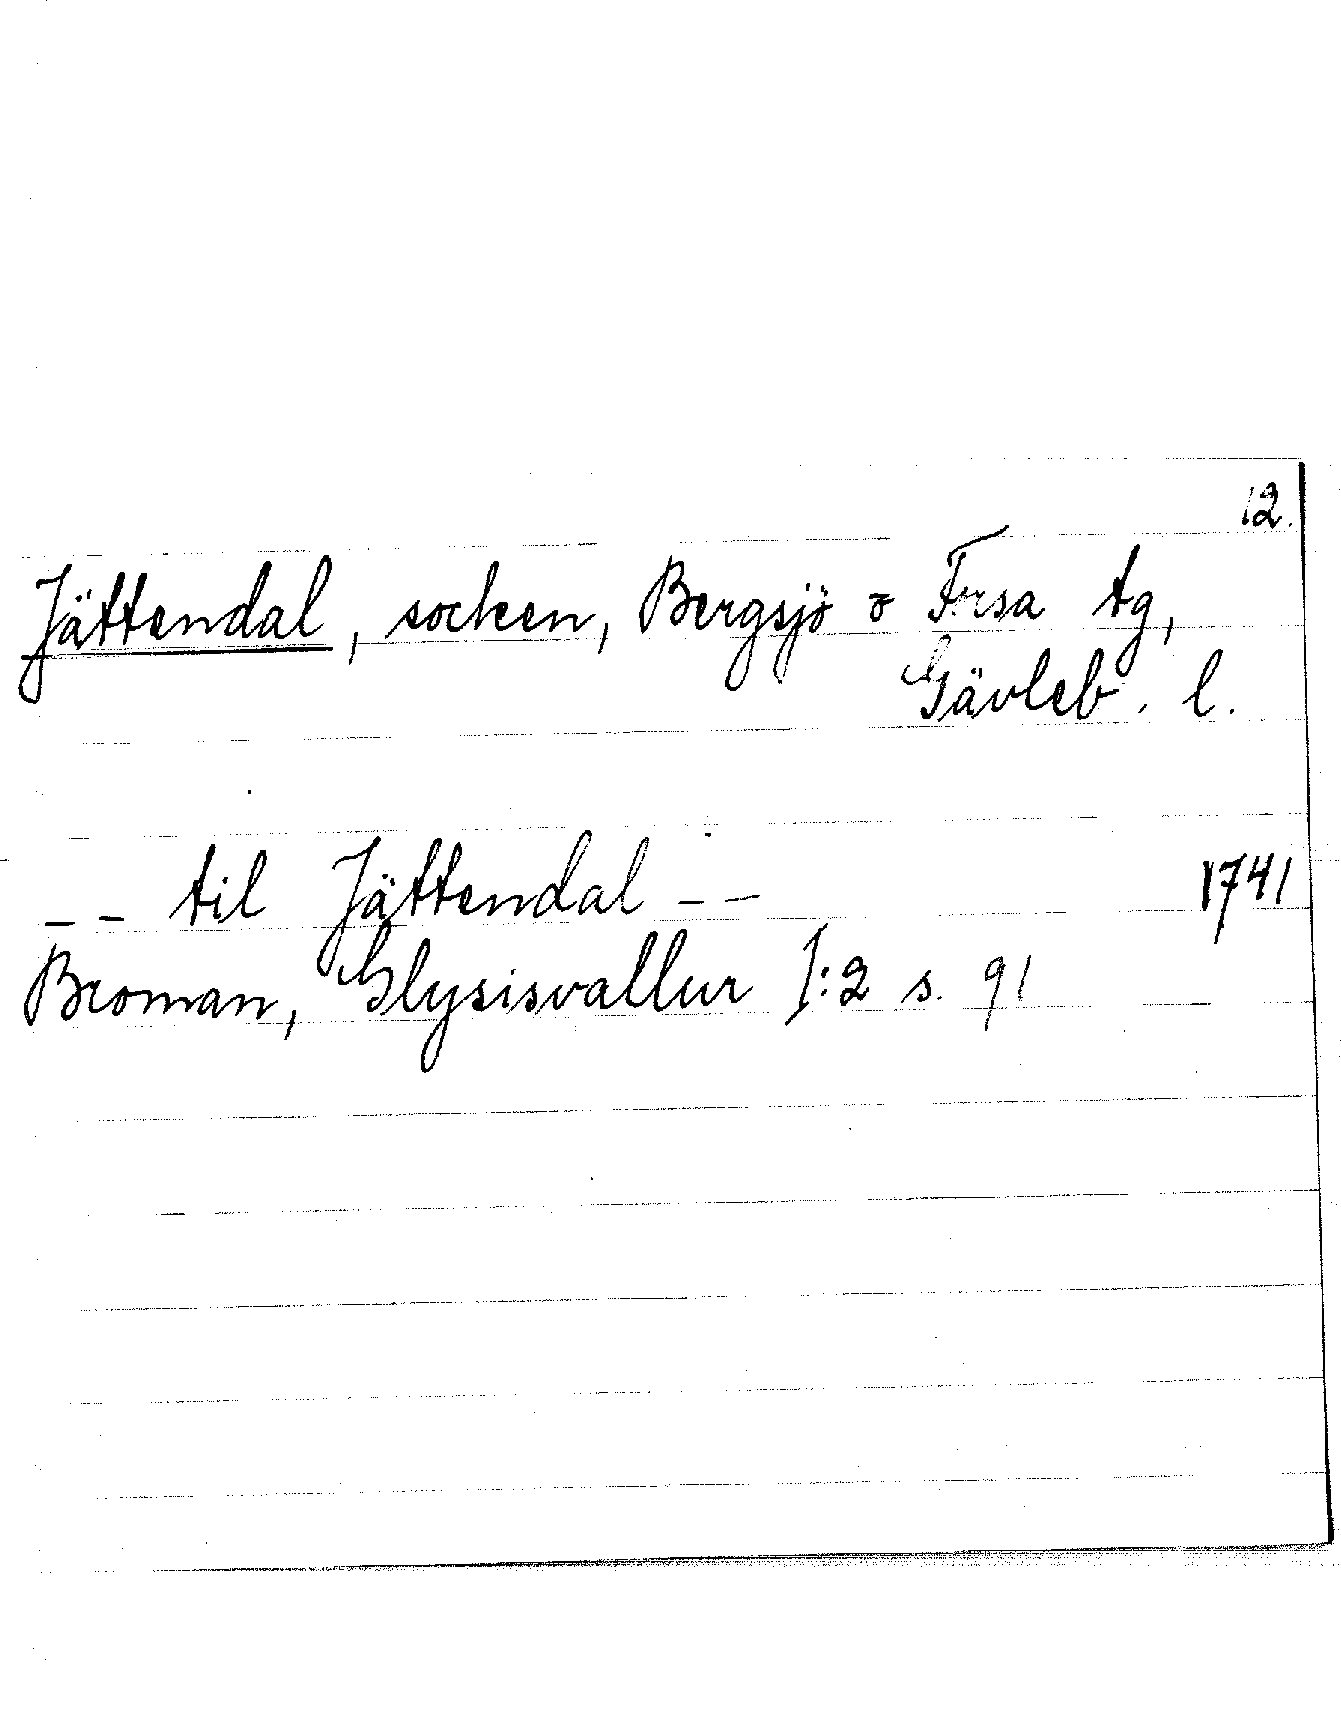 12.
Jättendal, socken, Bergsjö o Forsa tg,
Gävleb. l.
-- til Jättendal -- 1741
Broman, Glysisvallur I:2 s. 91